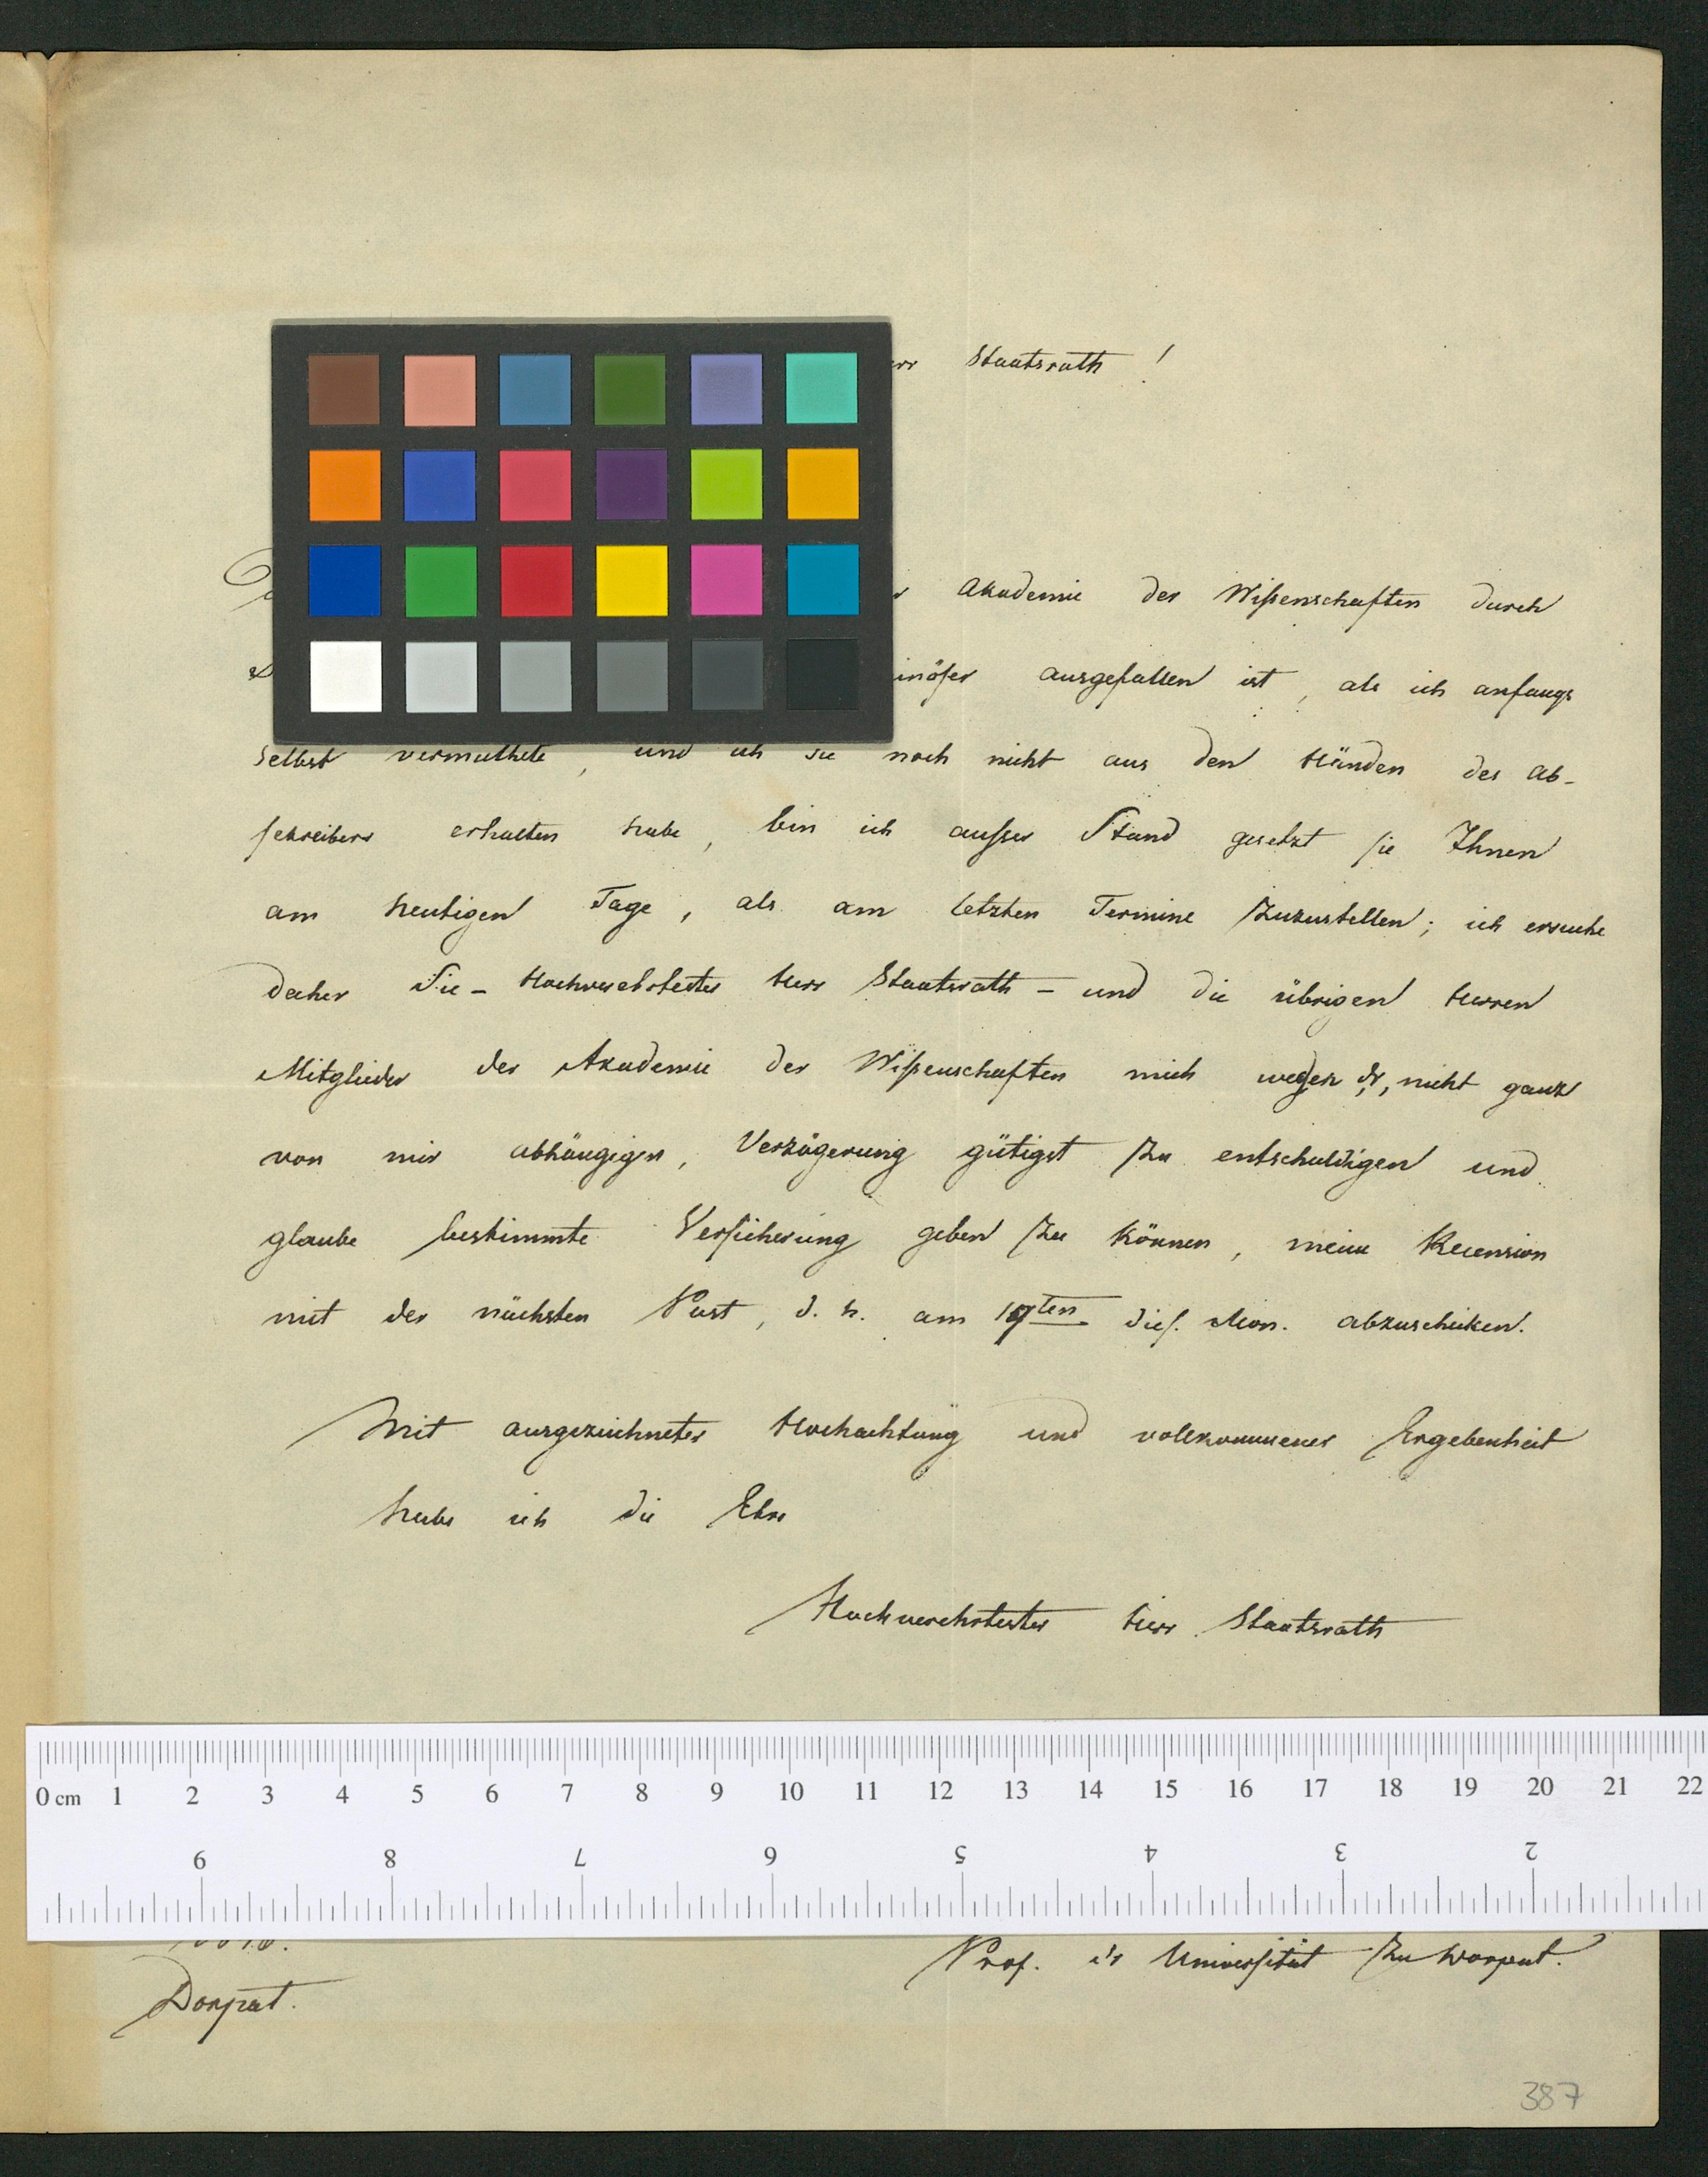 Staatsrath !
Akademie der Wißenschaften durch
ausgefallen ist, als ich anfangs
selbst vermuthete, und ich sie noch nicht aus den Händen des Ab-
schreibers erhalten habe, bin ich außer Stand gesetzt sie Ihnen
am heutigen Tage, als am letzten Termine zuzustellen; ich ersuche
daher Sie - Hochverehrtester Herr Staatsrath - und die übrigen Herren
Mitglieder der Akademie der Wißenschaften mich wegen der, nicht ganz
von mir abhängigen, Verzögerung gütigst zu entschuldigen und
glaube bestimmte Versicherung geben zu können, meine Recension
mit der nächsten Post, d. h. am 19ten dies. Mon. abzuschicken.
Mit ausgezeichneter Hochachtung und vollkommener Ergebenheit
habe ich die Ehre
Hochverehrtester Herr Staatsrath
0 cm 1 2 3 4 5 6 7 8 9 10 11 12 13 14 15 16 17 18 19 20 21 22
9 8 7 6 5 4 3 2
Prof. der Universität zu Dorpat.
Dorpat.
387